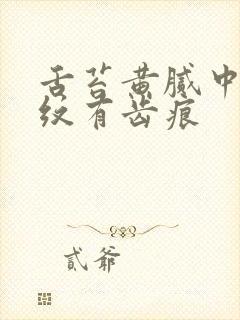 舌苔黄腻中
纹有齿痕
贰爷